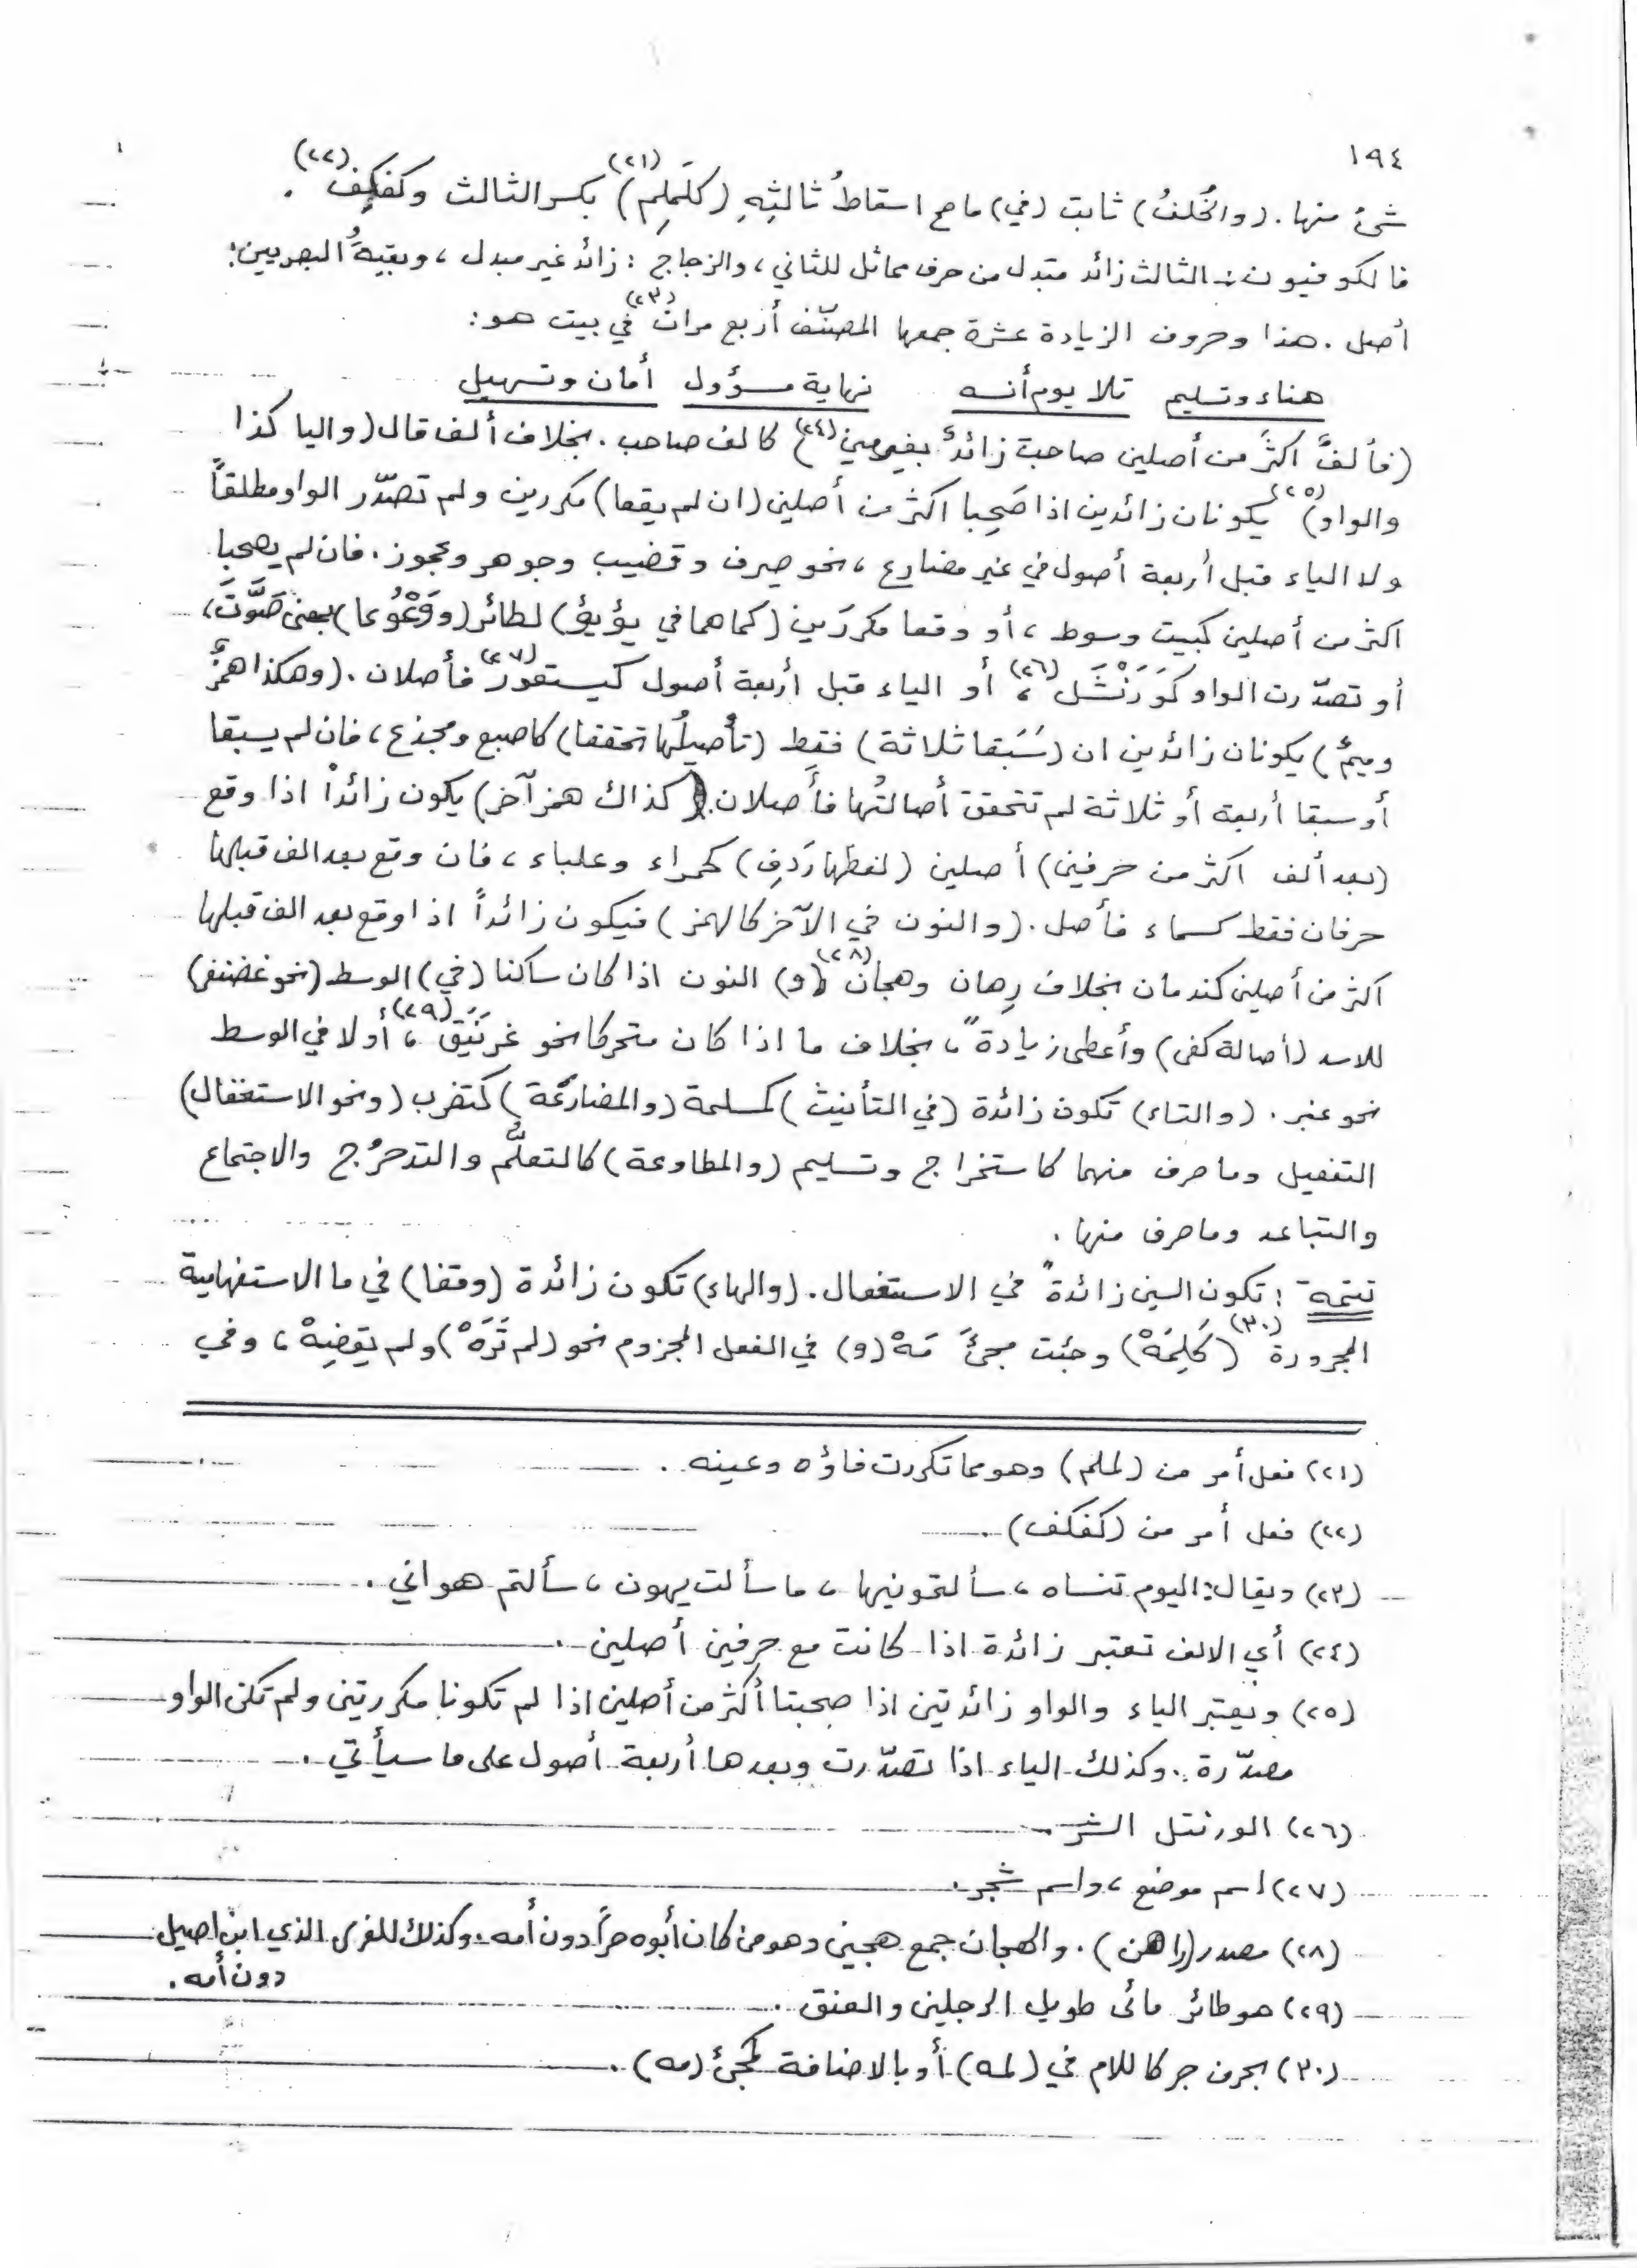 ١٩٤
شئ منها. (والخُلفُ) ثابت (في) ما صح اسقاطُ ثالثِهِ (كلَملِم) (٢١) بكسر الثالث وكفكِف (٢٢).
فالكوفيون: الثالث زائد مبدل من حرف مماثل للثاني، والزجاج: زائد غير مبدل، وبقيةُ البصريين:
أصل. هذا وحروف الزيادة عشرة جمعها المصنّف أربع مرات (٢٣) في بيت هو:
هناء وتسليم تلا يوم أنسه نهاية مسؤول أمان وتسهيل
(فألفٌ اكثرَ من أصلين صاحبت زائدٌ بغير مين) (٢٤) كالف صاحب. بخلاف ألف قال (واليا كذا
والواو) (٢٥) يكونان زائدين اذا صَحِبا اكثر من أصلين (ان لم يقعا) مكررين ولم تصدّر الواو مطلقاً
ولا الياء قبل أربعة أصول في غير مضارع، نحو صيرف وقضيب وجوهر وعجوز. فان لم يصحبا
اكثر من أصلين كبيت وسوط، أو وقعا مكررَين (كما هما في يؤيؤ) لطائر (ووَعْوَعا) بمعنى صَوَّتَ،
أو تصدّرت الواو كوَرَنْتَل (٢٦)، أو الياء قبل أربعة أصول كيستعور (٢٧) فأصلان. (وهكذا همزٌ
وميمٌ) يكونان زائدين ان (سَبَقا ثلاثة) فقط (تأصيلُها تحققا) كاصبع ومجذع، فان لم يسبقا
أو سبقا أربعة أو ثلاثة لم تتحقق أصالتُها فأصلان. (كذاك همز آخر) يكون زائداً اذا وقع
(بعد ألف اكثر من حرفين) أصلين (لفظها رَدِف) كحمراء وعلباء، فان وقع بعد الف قبلها
حرفان فقط كسماء فأصل. (والنون في الآخر كالهمز) فيكون زائداً اذا وقع بعد الف قبلها
اكثر من أصلين كندمان بخلاف رِهان وهجان (٢٨) (و) النون اذا كان ساكنا (في) الوسط (نحو غضنفر)
للاسد (أصالة كفى) وأعطى زيادةً، بخلاف ما اذا كان متحركا نحو غرنَيق (٢٩)، أو لا في الوسط
نحو عنبر. (والتاء) تكون زائدة (في التأنيث) كمسلمة (والمضارَعَة) كتضرب (ونحو الاستفعال)
التفعيل وما صرف منهما كاستخراج وتسليم (والمطاوعة) كالتعلُّم والتدحرُج والاجتماع
والتباعد وما صرف منها.
تتمة: تكون السين زائدةً في الاستفعال. (والهاء) تكون زائدة (وقفا) في ما الاستفهامية
المجرورة (٣٠) (كلِمَهْ) وجئت مجئَ مَهْ (و) في الفعل المجزوم نحو (لم تَرَهْ) ولم يقضِهْ، وفي
(٢١) فعل أمر من (لملم) وهو مما تكررت فاؤه وعينه.
(٢٢) فعل أمر من (كفكف).
(٢٣) ويقال: اليوم تنساه، سألتمونيها، ما سألت يهون، سألتم هواني.
(٢٤) أي الالف تعتبر زائدة اذا كانت مع حرفين أصلين.
(٢٥) ويعتبر الياء والواو زائدتين اذا صحبتا أكثر من أصلين اذا لم تكونا مكررتين ولم تكن الواو
مصدّرة. وكذلك الياء اذا تصدّرت وبعدها أربعة أصول على ما سيأتي.
(٢٦) الورنتل الشر.
(٢٧) اسم موضع، واسم شجر.
(٢٨) مصدر (راهن). والهجان جمع هجين وهو من كان أبوه حراً دون أمه. وكذلك للفرس الذي ابن اصيل
دون أمه.
(٢٩) هو طائر مائى طويل الرجلين والعنق.
(٣٠) بحرف جر كاللام في (لمه) أو بالاضافة كمجئ (مه).